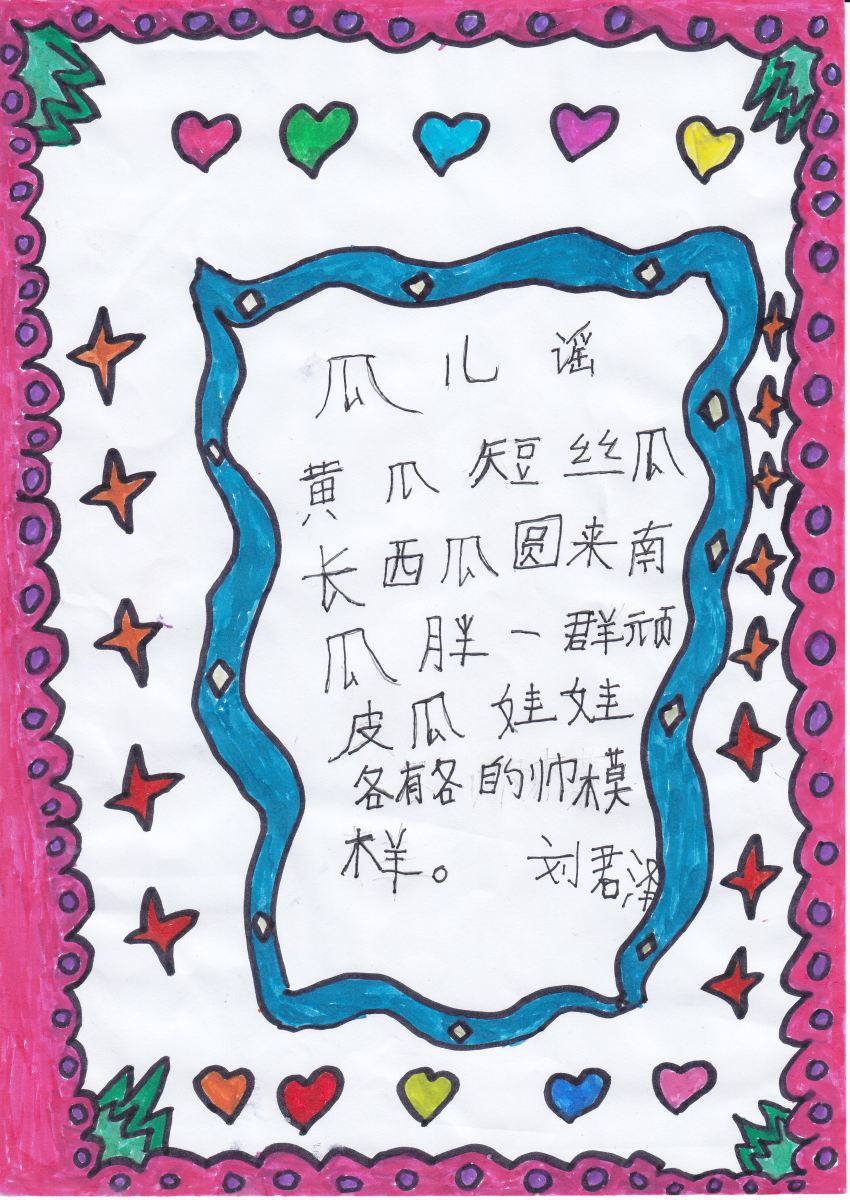 瓜儿谣
黄瓜短丝瓜
长西瓜圆来南
瓜胖一群顽
皮瓜娃娃
各有各自的帅模
样。 刘君泽